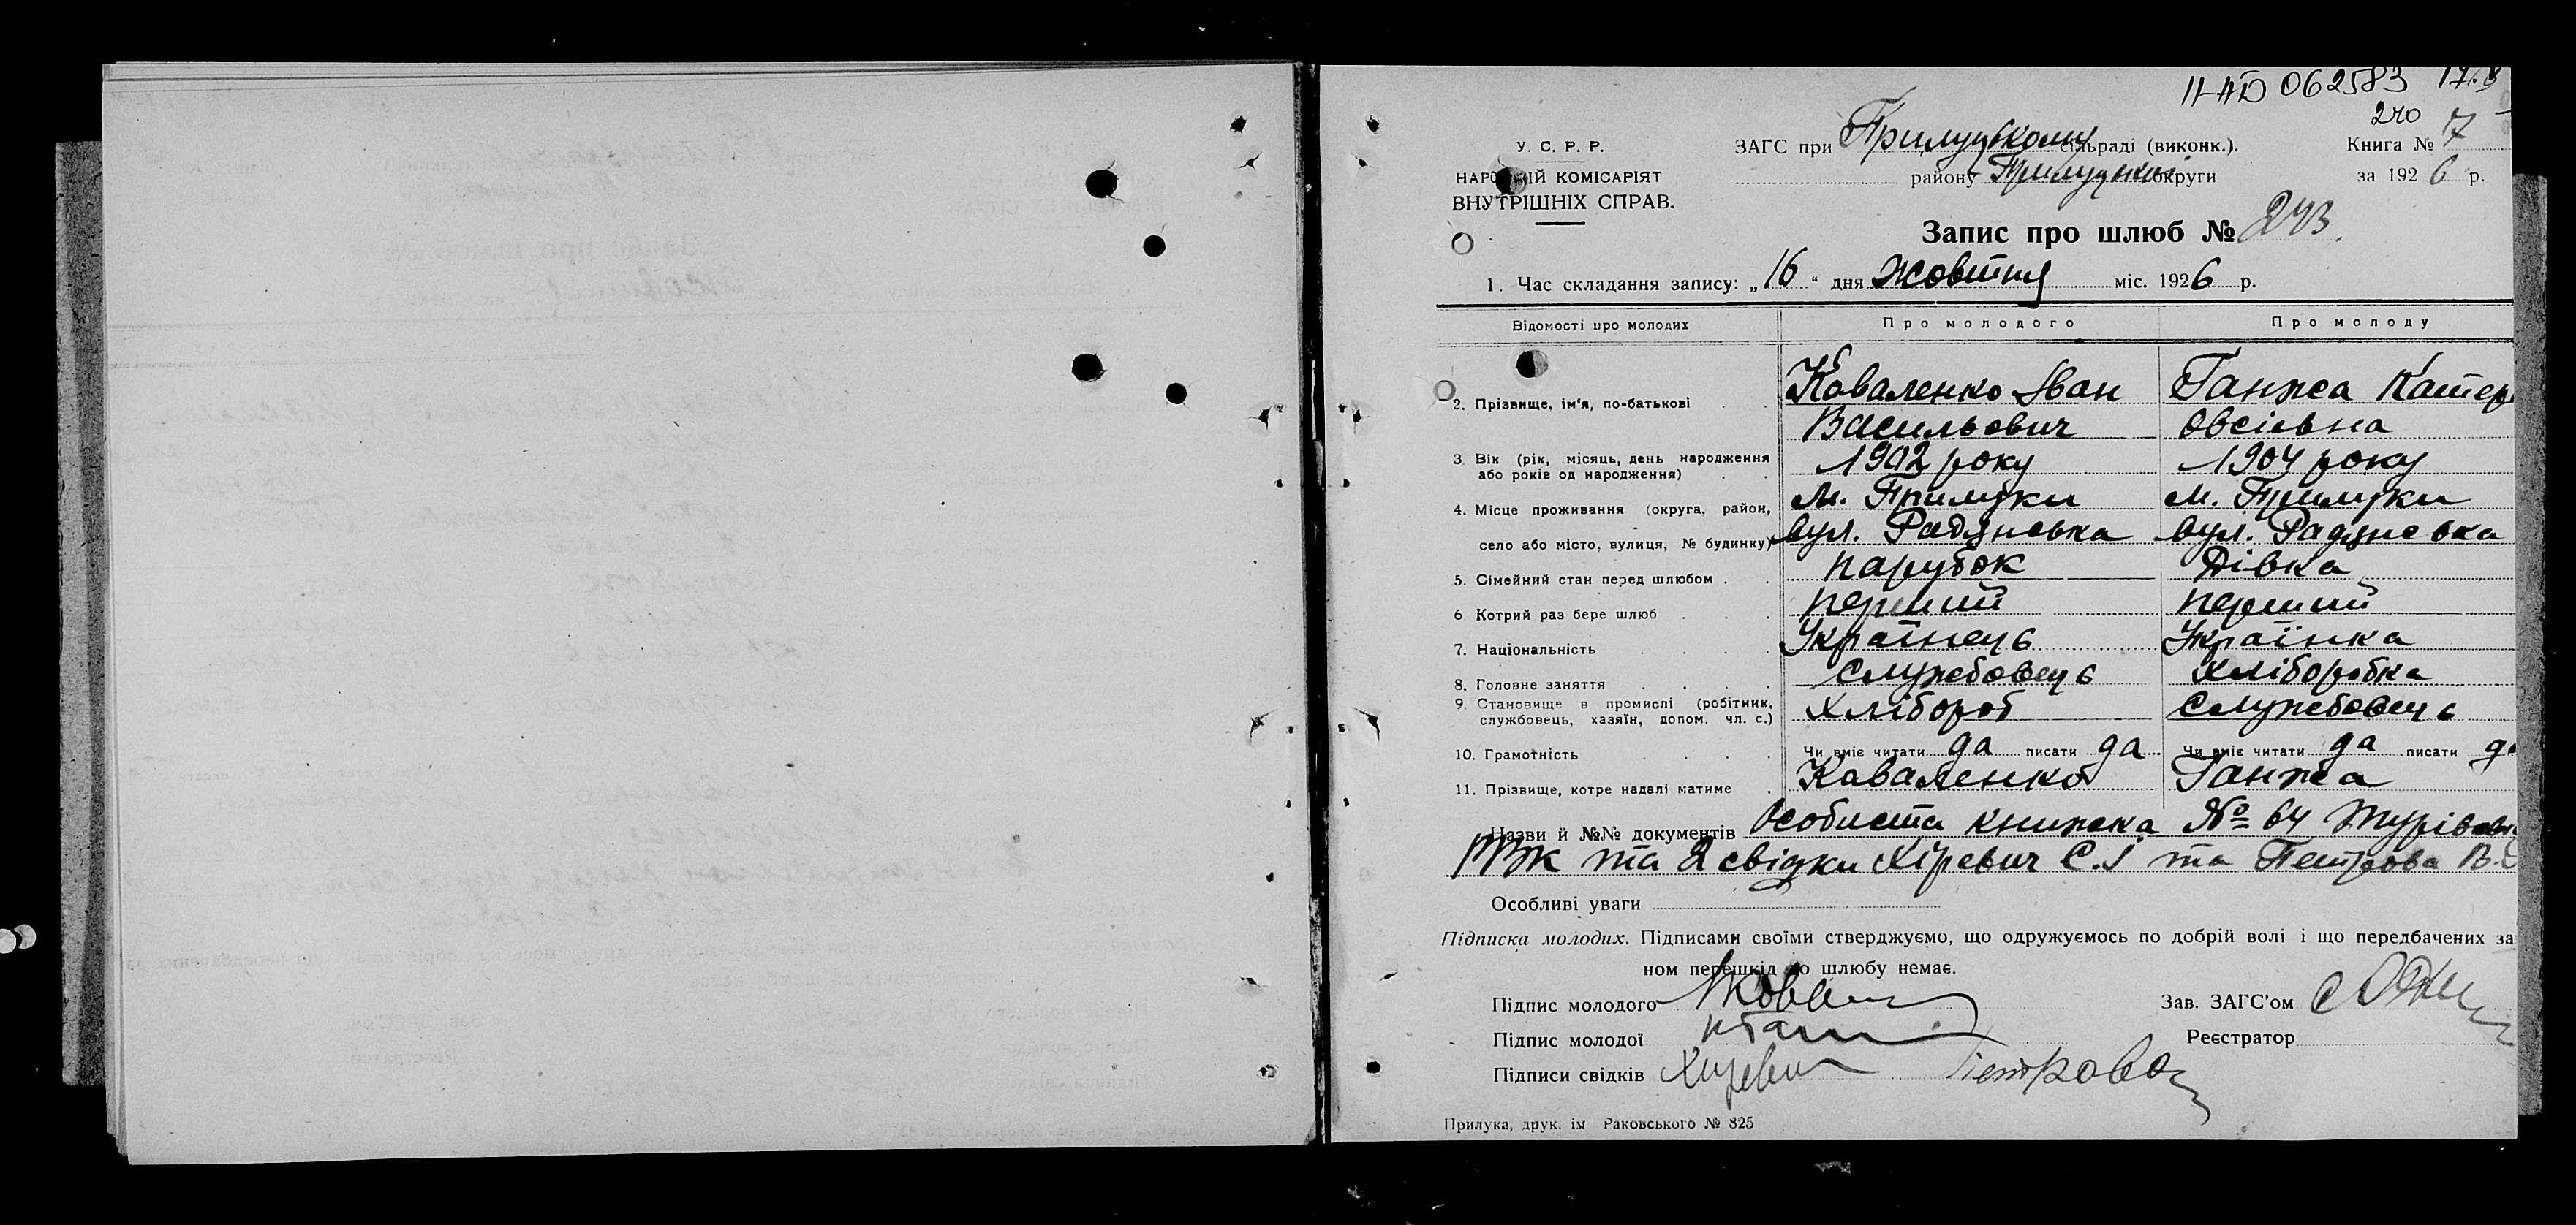 II-АД 062583
240
У. С. Р. Р. ЗАГС при Прилуцькому сільраді (виконк.). Книга № 7
НАРОДНІЙ КОМІСАРІЯТ району Прилуцької округи за 1926 р.
ВНУТРІШНІХ СПРАВ.
Запис про шлюб № 243.
1. Час складання запису: „16“ дня Жовтня міс. 1926 р.
Відомості про молодих Про молодого Про молоду
2. Прізвище, ім'я, по-батькові Коваленко Іван Ганжа Катер
Васильович Овсіївна
3 Вік (рік, місяць, день народження 1902 року 1904 року
або років од народження)
4. Місце проживання (округа, район, м. Прилуки м. Прилуки
село або місто, вулиця, № будинку) вул. Радянська вул. Радянська
5. Сімейний стан перед шлюбом парубок Дівка
6 Котрий раз бере шлюб перший перший
7. Національність Українець Українка
8. Головне заняття Службовець Хліборобка
9. Становище в промислі (робітник, Хлібороб Службовець
службовець, хазяїн, допом. чл. с.)
10. Грамотність Чи вміє читати да писати да Чи вміє читати да писати да
11. Прізвище, котре надалі матиме Коваленко Ганжа
Назви й №№ документів Особиста книжка № 64 Журівськ
РВК та 2 свідки Хіревич С.І та Петрова В.
Особливі уваги
Підписка молодих. Підписами своїми стверджуємо, що одружуємось по добрій волі і що передбачених за
ном перешкід до шлюбу немає.
Підпис молодого Зав. ЗАГС'ом
Підпис молодої Реєстратор
Підписи свідків Хиревич Петрова
Прилука, друк. ім Раковського № 825